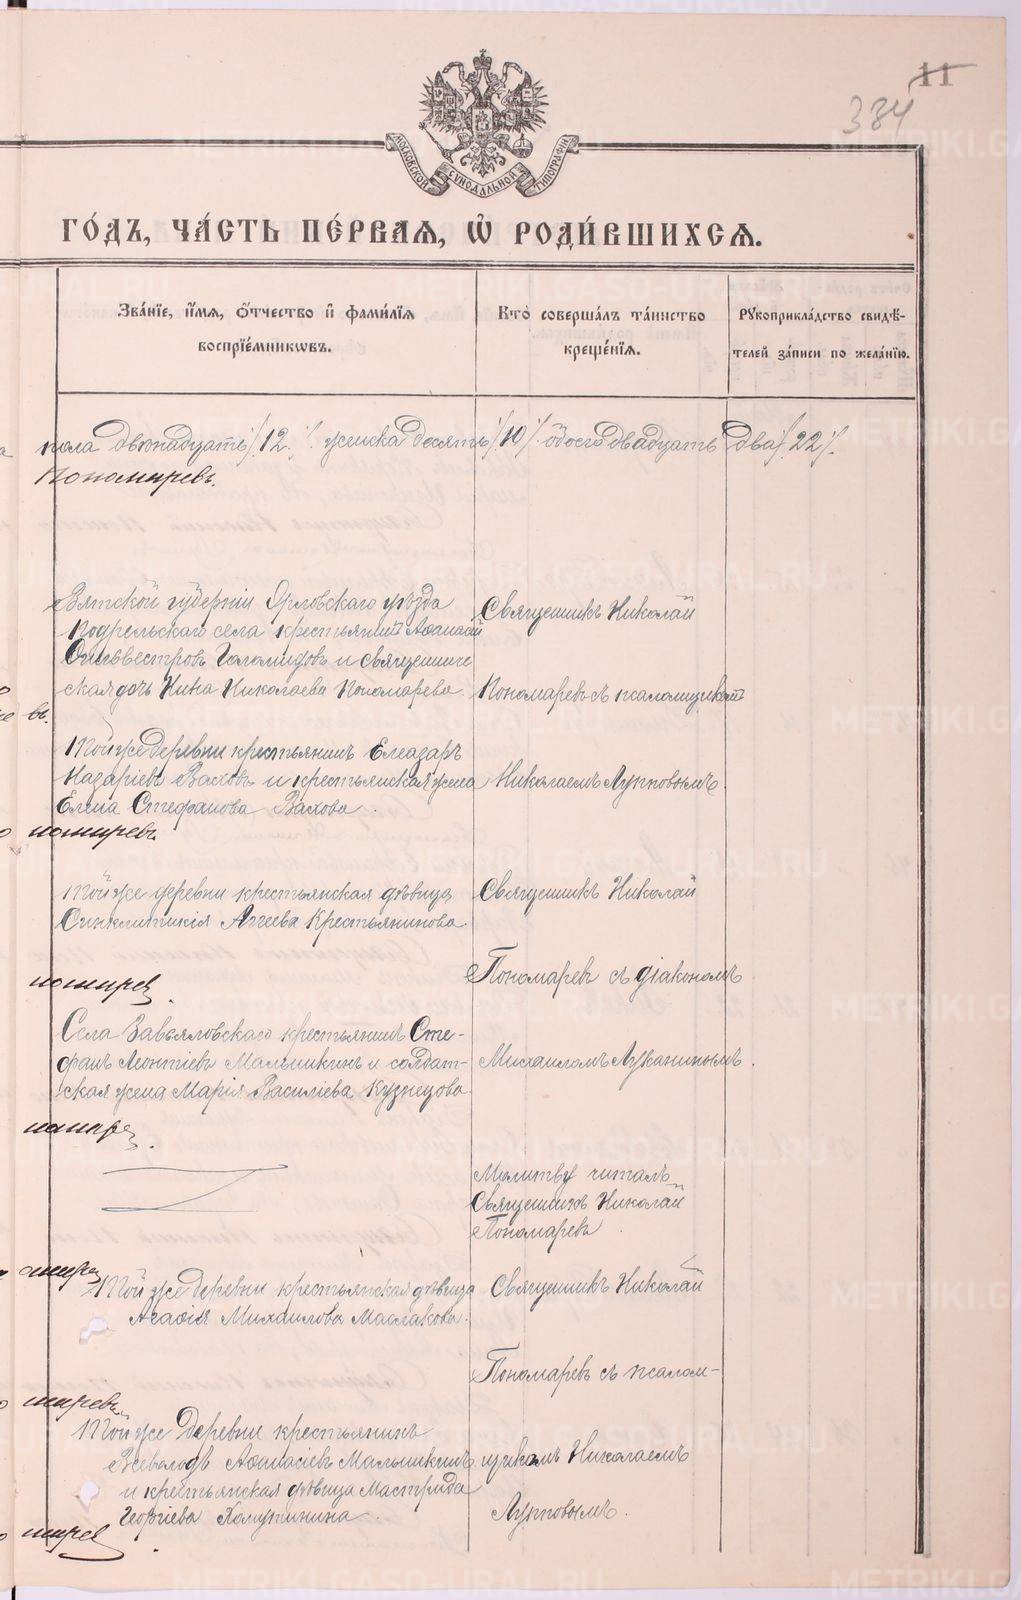 11
384
МОСКОВСКОЙ СѴНОДАЛЬНОЙ ТИПОГРАФІИ
ГО́ДЪ, ЧА́СТЬ ПЕ́РВАѦ, Ѽ РОДИ́ВШИХСѦ.
Зва́нїе, и҆́мѧ, ѻ҆́тчество и҆ фами́лїѧ
воспрїе́мникѡвъ.
Кто̀ соверша́лъ та́инство
креще́нїѧ.
Рꙋкоприкла́дство свидѣ́-
телей за́писи по жела́нїю.
пола двѣнадцать /12./. женска десять /10/. обоего двадцать два /.22/.
Пономаревъ.
Вятской губерніи Орловскаго уѣзда
села крестьянинъ Аѳанасій
и священниче
ская дочь Нина Николаева Пономарева.
Священникъ Николай
Пономаревъ съ псаломщикомъ
въ.
Той же деревни крестьянинъ Елеазаръ
Назаріевъ Ваховъ и крестьянская жена
Елена Стефанова Вахова.
Николаемъ Лупповымъ.
номаревъ
Той же деревни крестьянская дѣвица
Синклитикія Аггеева Крестьянинова.
Священникъ Николай
номарев.
Пономаревъ съ діакономъ
Села Завьяловскаго крестьянинъ Сте-
фанъ Леонтіевъ Малышкинъ и солдат-
ская жена Марія Василіева Кузнецова
Михаиломъ Лукинымъ.
номаре.
Молитву читалъ
Священникъ Николай
Пономаревъ.
Той же деревни крестьянская дѣвица
Агафія Михаилова Маслакова.
Священникъ Николай
Пономаревъ съ псалом-
маревъ
Той же деревни крестьянинъ
Всеволодъ Аѳанасіевъ Малышкинъ
и крестьянская дѣвица Мастрида
Георгіева Хомутинина.
щикомъ Николаемъ
Лупповымъ.
марев.
METRIKI.GASO-URAL.RU